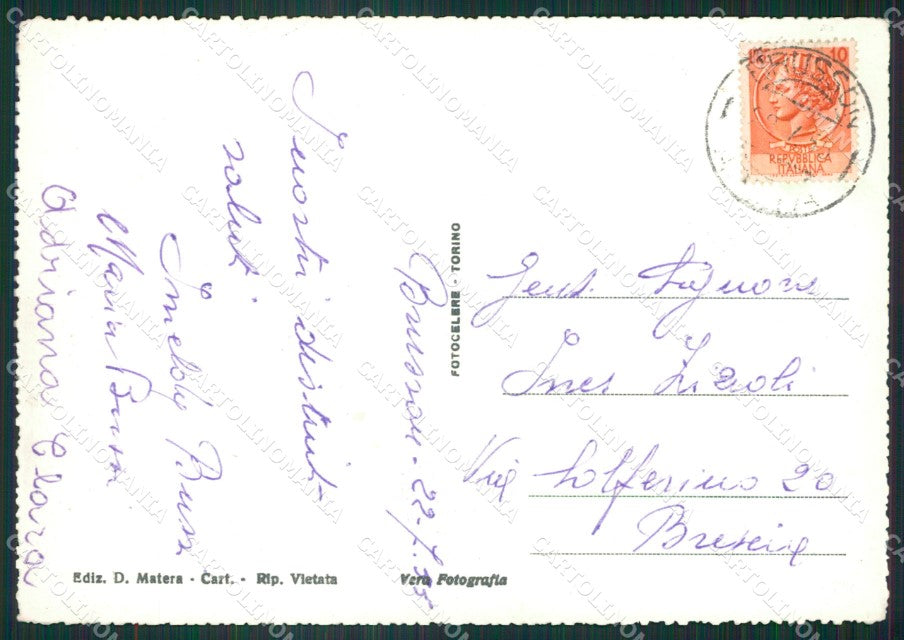 Brusson - 22-7.55
I nostri distinti
saluti.
Imelde Bussi
Maria Bussi
Adriana Clara
FOTOCELERE - TORINO
10
BRUSSON
REPVBBLICA
ITALIANA
Gent. Signora
Ines
Via Solferino 20
Brescia
Ediz. D. Matera - Cart. - Rip. Vietata
Vera Fotografia
CARTOLINOMANIA